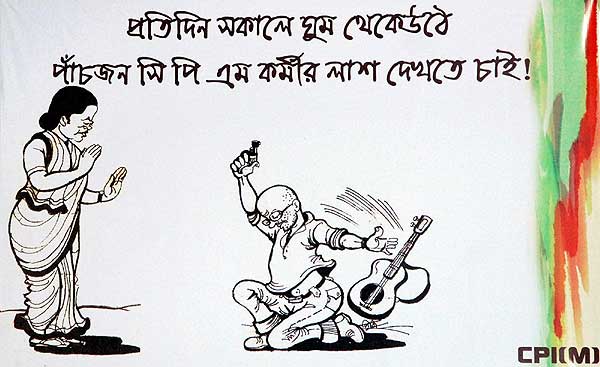 প্রতিদিন সকালে ঘুম থেকেউঠে
পাঁচজন সি পি এম কর্মীর লাশ দেখতে চাই!
CPI(M)